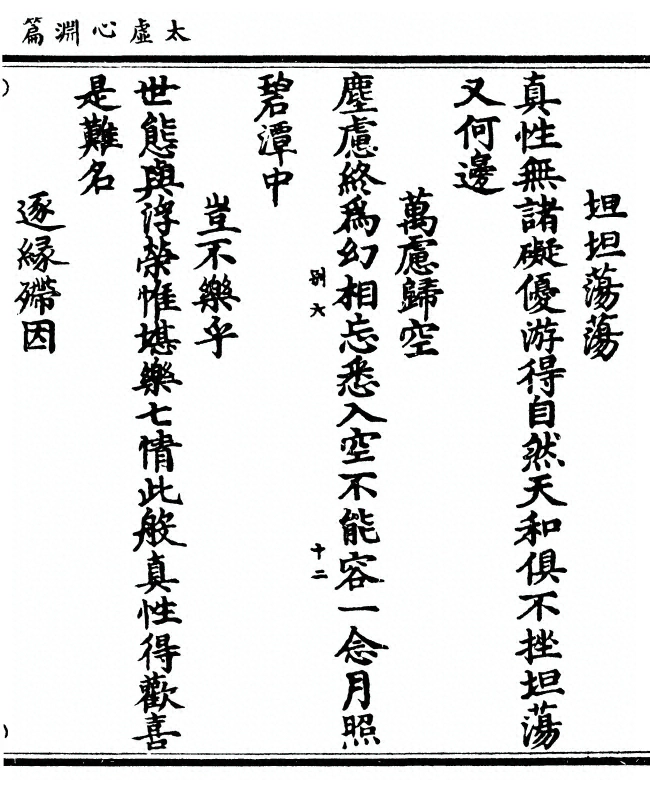 太虛心淵篇
坦坦蕩蕩
真性無諸礙優游得自然天和俱不挫坦蕩
又何邊
萬慮歸空
塵慮終爲幻相忘悉入空不能容一念月照
別六
十二
碧潭中
豈不樂乎
世態與浮榮惟堪樂七情此般真性得歡喜
是難名
逐緣殢因